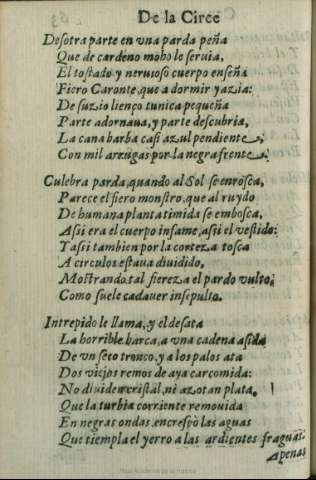 De la Circe
Desotra parte en vna parda peña
Que de cardeno moho le seruia,
El tostado, y neruoso cuerpo enseña
Fiero Caronte, que a dormir yazia:
De suzio lienço tunica pequeña
Parte adornaua, y parte descubria,
La cana barba casi azul pendiente,
Con mil arrugas por la negra frente.
Culebra parda, quando al Sol se enrosca,
Parece el fiero monstro, que al ruydo
De humana planta timida se embosca,
Assi era el cuerpo infame, assi el vestido:
Y assi tambien por la corteza tosca
A circulos estaua diuidido,
Mostrando tal fiereza el pardo vulto,
Como suele cadauer insepulto.
Intrepido le llama, y el desata
La horrible barca, a vna cadena asida
De vn seco tronco, y a los palos ata
Dos viejos remos de aya carcomida:
No diuiden cristal, ni azotan plata,
Que la turbia corriente remouida
En negras ondas encrespò las aguas
Que tiempla el yerro a las ardientes fraguas.
Apenas
Real Academia de la Historia